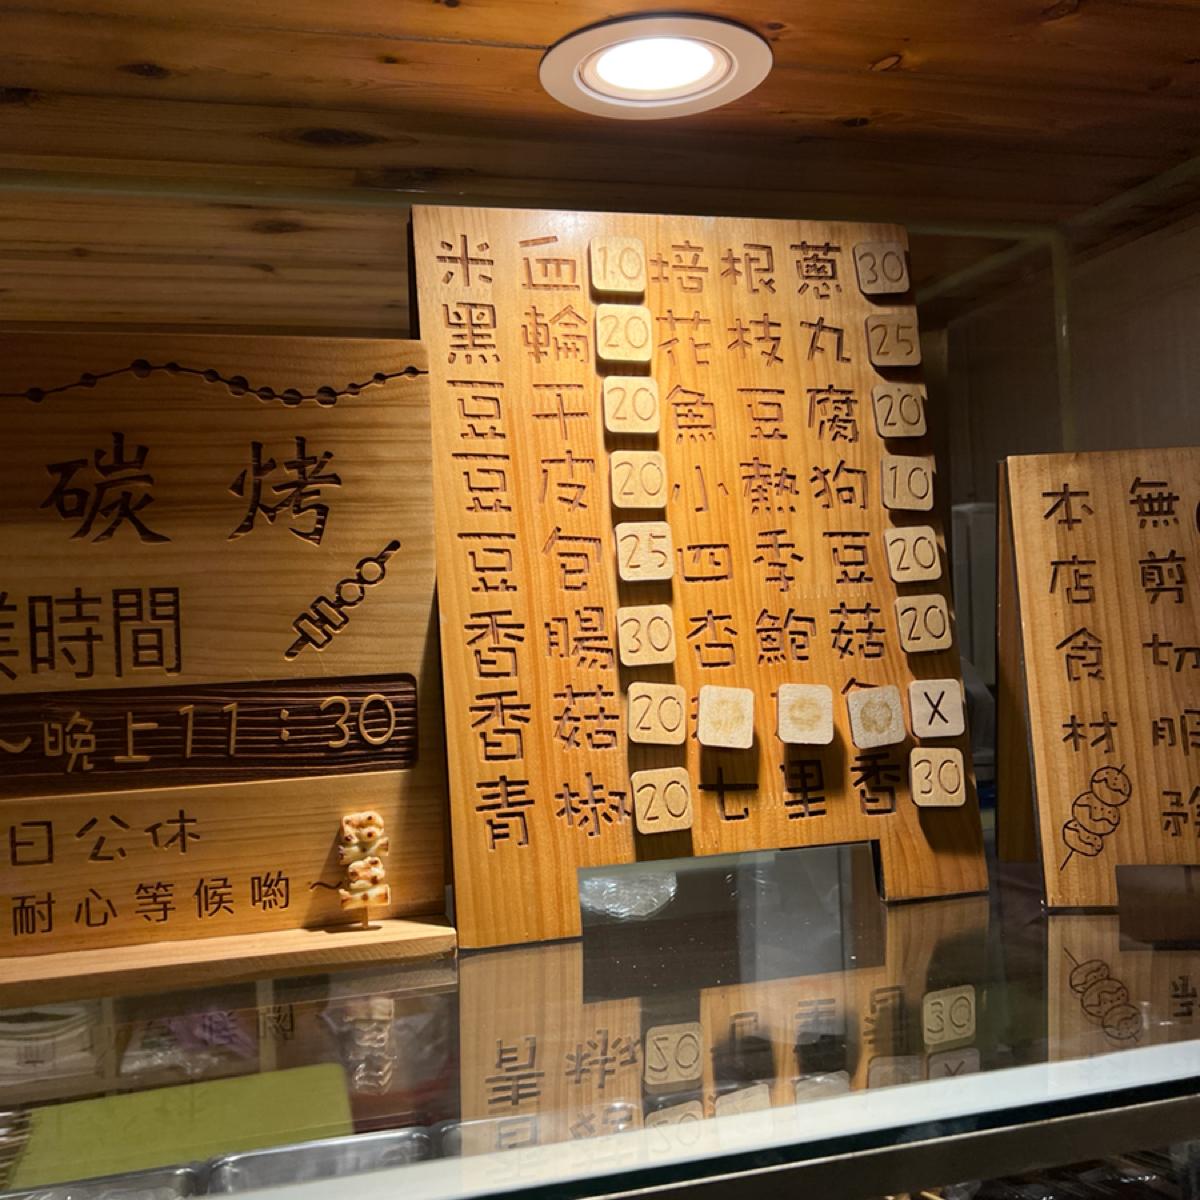 碳烤
業時間
～晚上11：30
日公休
耐心等候喲～
米血 10 培根蔥 30
黑輪 20 花枝丸 25
豆干 20 魚豆腐 20
豆皮 20 小熱狗 10
豆包 25 四季豆 20
香腸 30 杏鮑菇 20
香菇 20 X
青椒 20 七里香 30
本店食材
無剪切服